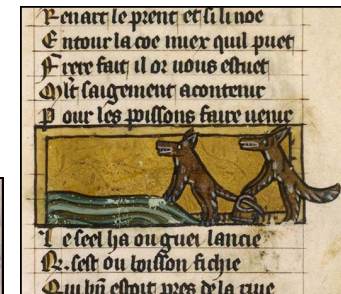 Renart le prent et si li noe
Entour la coe miex quil puet
Frere fait il or uous estuet
Mlt saigement a contenir
Pour les poissons faire uenir
Le seel ha ou guei lancie
R. sest ou buisson fichie
Qui bn estoit pres de la riue